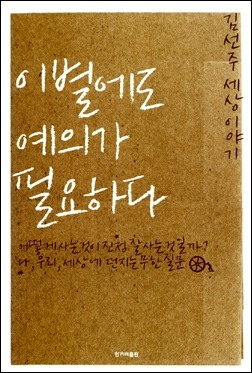 이별에도
예의가
필요하다
김선주 세상 이야기
어떻게 사는 것이 진정 잘 사는 것일까?
나, 우리, 세상에 던지는 무한 질문
한겨레출판